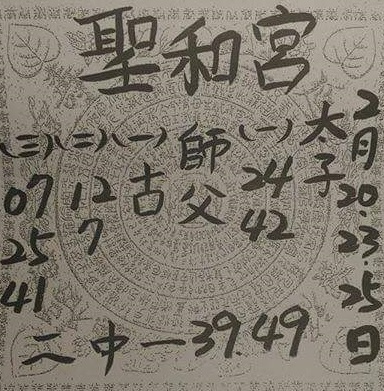 聖和宮
2月20.23.25日
太子
(一)
24
42
師父
(一)
古
(二)
12
7
(三)
07
25
41
二中一39.49